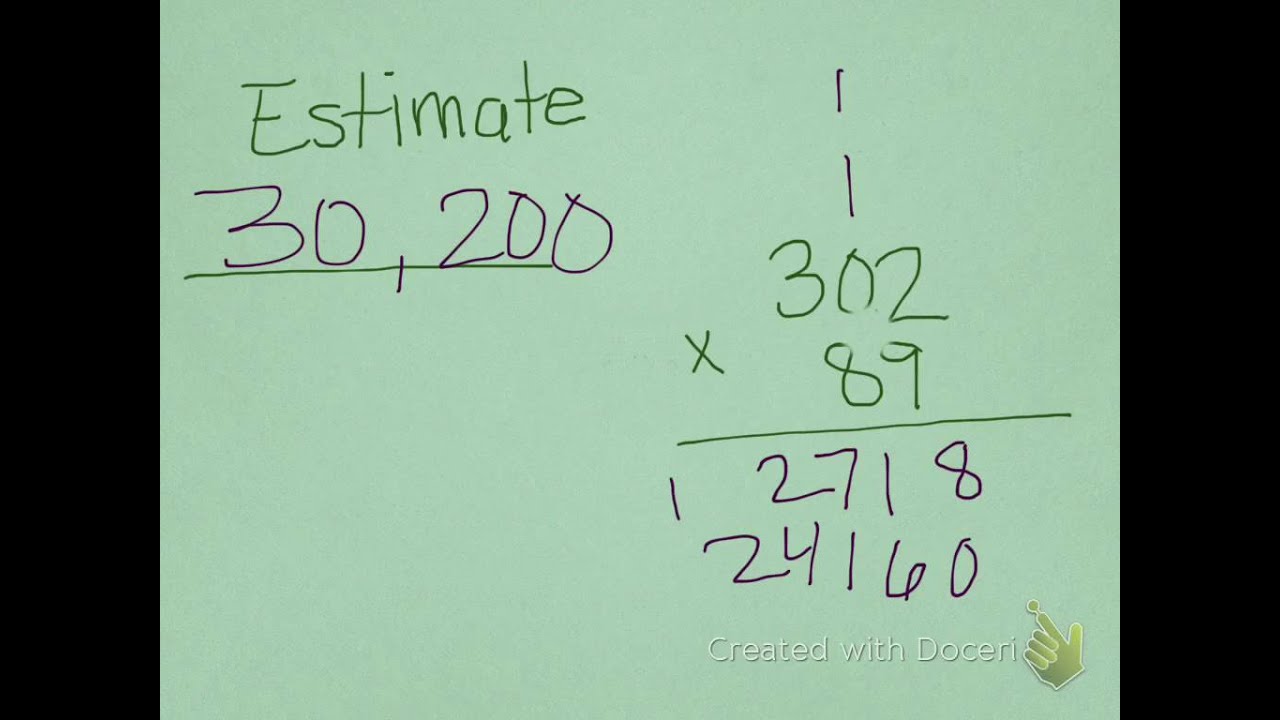 Estimate
30,200
1
1
302
x 89
2718
1
24160
Created with Doceri